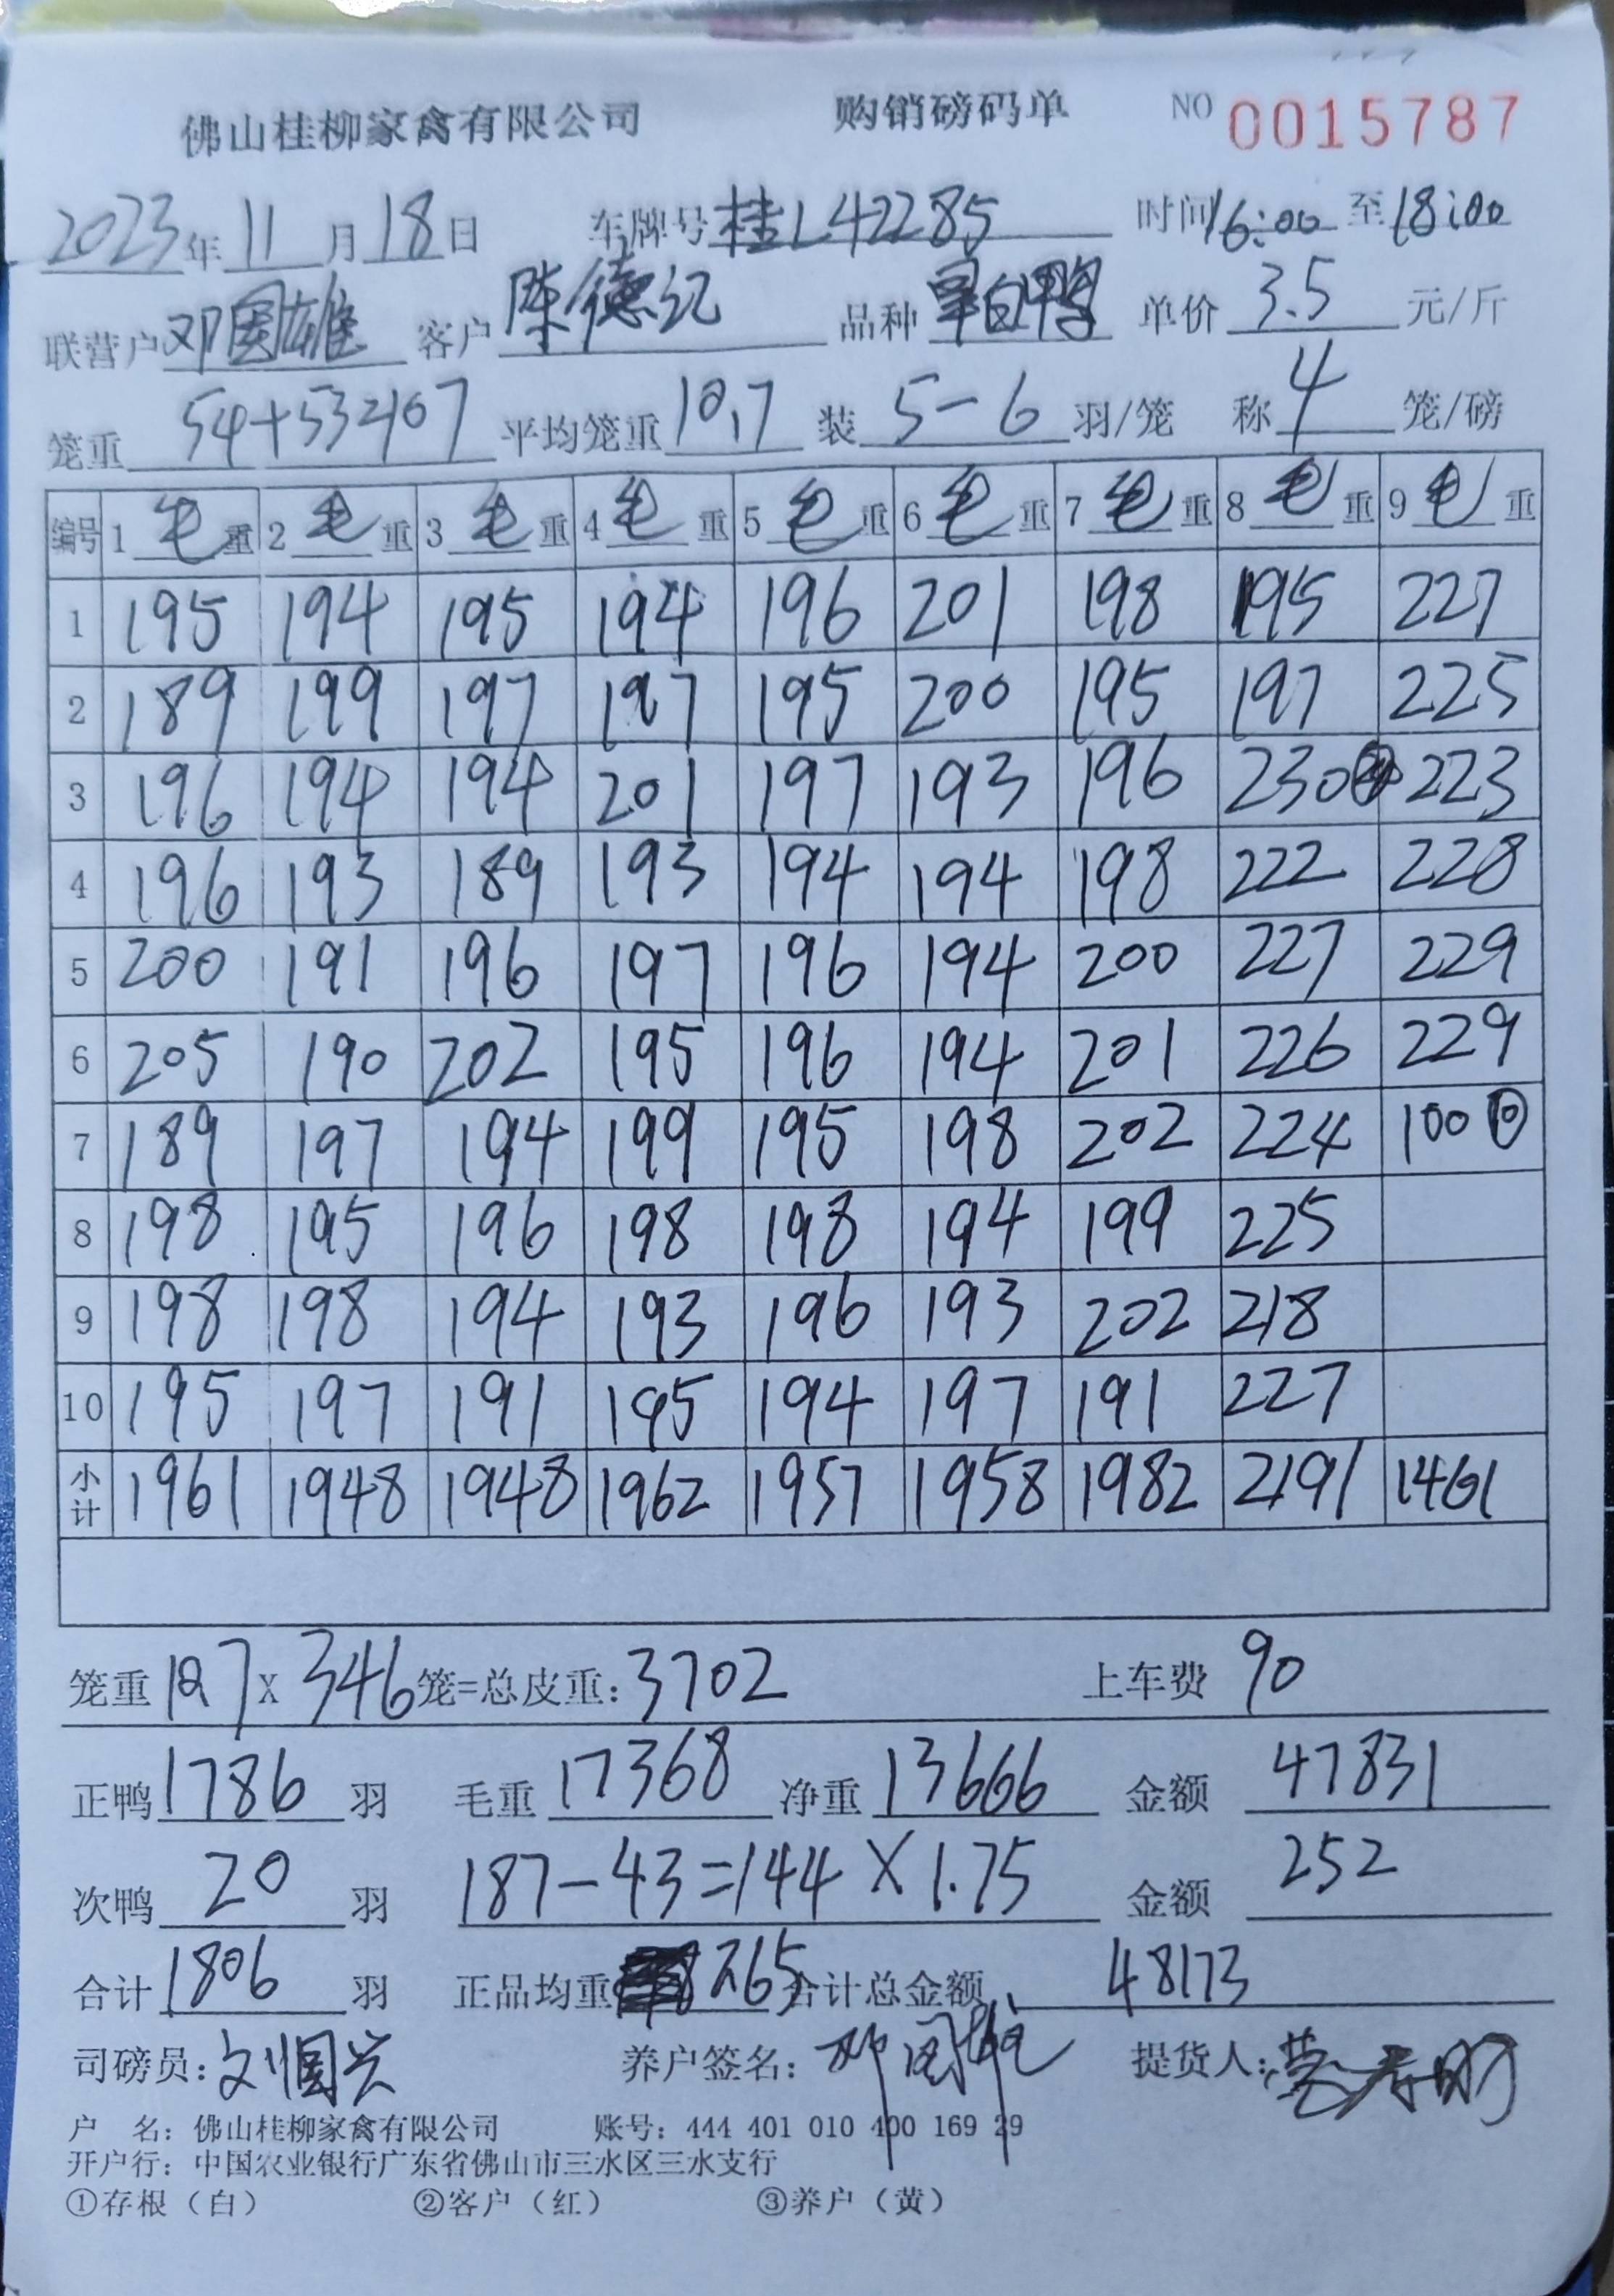 佛山桂柳家禽有限公司 购销磅码单 NO 0015787
2023年11月18日 车牌号桂L42285 时间16:00至18:00
联营户邓国雄 客户陈德纪 品种 单价3.5元/斤
笼重54+53=107 平均笼重10.7 装5-6羽/笼 称4笼/磅
编号 1毛重 2毛重 3毛重 4毛重 5毛重 6毛重 7毛重 8毛重 9毛重
1 195 194 195 194 196 201 198 195 227
2 189 199 197 197 195 200 195 197 225
3 196 194 194 201 197 193 196 230 223
4 196 193 189 193 194 194 198 222 228
5 200 191 196 197 196 194 200 227 229
6 205 190 202 195 196 194 201 226 229
7 189 197 194 199 195 198 202 224 100
8 198 195 196 198 198 194 199 225
9 198 198 194 193 196 193 202 218
10 195 197 191 195 194 197 191 227
小计 1961 1948 1948 1962 1957 1958 1982 2191 1461
笼重10.7x346笼=总皮重:3702 上车费90
正鸭1786羽 毛重17368 净重13666 金额47831
次鸭20羽 187-43=144×1.75 金额252
合计1806羽 正品均重7.65 合计总金额48173
司磅员:刘国兴 养户签名:邓国雄 提货人:
户 名:佛山桂柳家禽有限公司 账号:444 401 010 400 169 29
开户行:中国农业银行广东省佛山市三水区三水支行
①存根(白) ②客户(红) ③养户(黄)